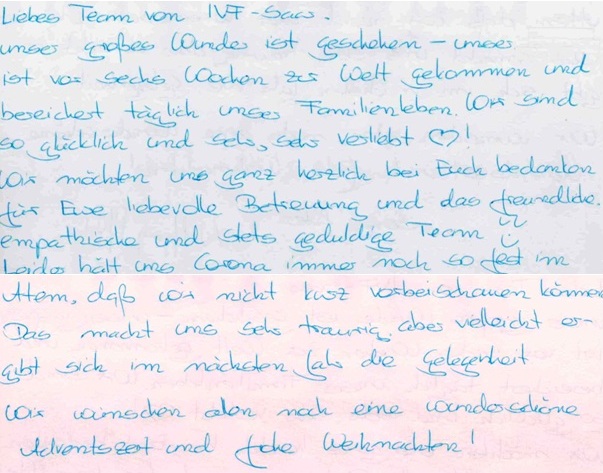 Liebes Team von IVF-Saar.
unser großes Wunder ist geschehen – unser
ist vor sechs Wochen zur Welt gekommen und
bereichert täglich unser Familienleben. Wir sind
so glücklich und sehr, sehr verliebt ♡!
Wir möchten uns ganz herzlich bei Euch bedanken
für Eure liebevolle Betreuung und das freundliche.
empathische und stets geduldige Team
Leider hält uns Corona immer noch so fest im
Atem, daß wir nicht kurz vorbeischauen können
Das macht uns sehr traurig, aber vielleicht er-
gibt sich im nächsten Jahr die Gelegenheit
Wir wünschen allen noch eine wunderschöne
Adventszeit und frohe Weihnachten!